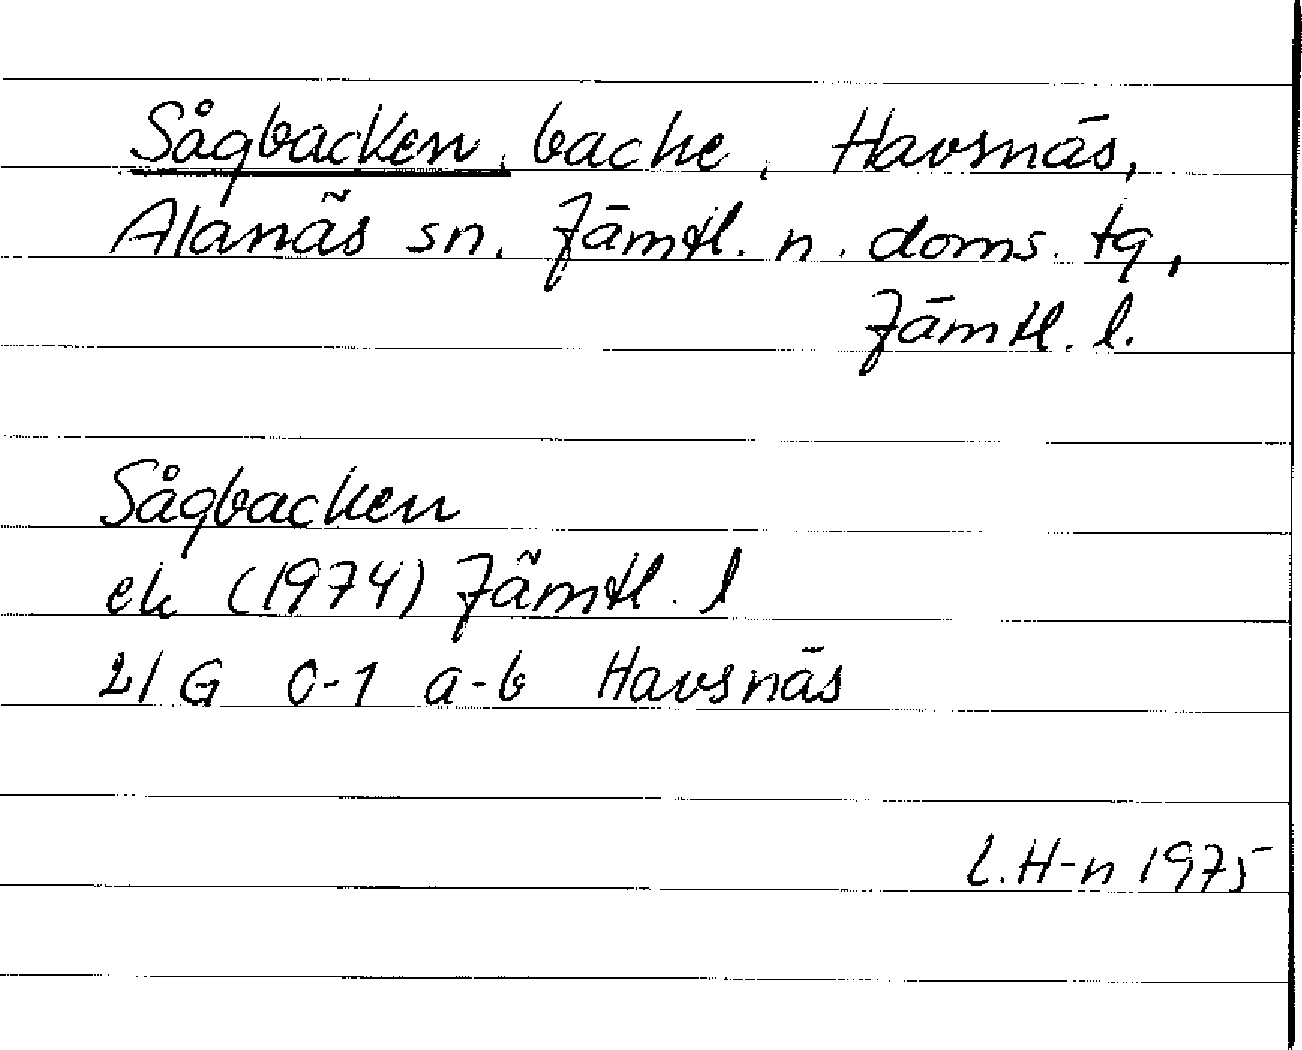 Sågbacken, backe, Havsnäs,
Alanäs sn. Jämtl. n. doms. tg,
Jämtl. l.
Sågbacken
ek (1974) Jämtl. l
21 G 0-1 a-b Havsnäs
L.H-n 1975